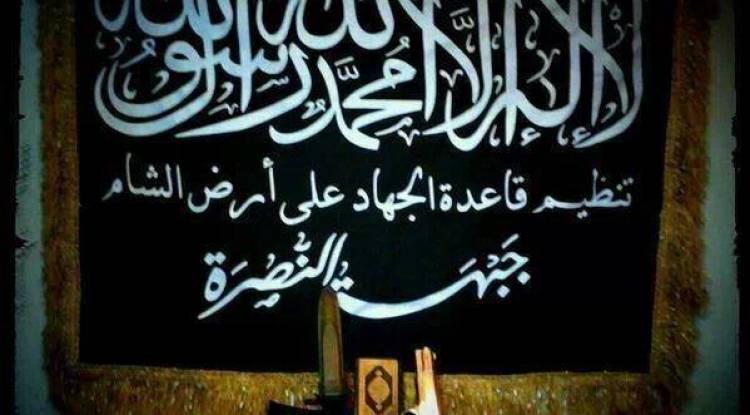 لا إله إلا الله محمد رسول الله
تنظيم قاعدة الجهاد على أرض الشام
جبهة النصرة